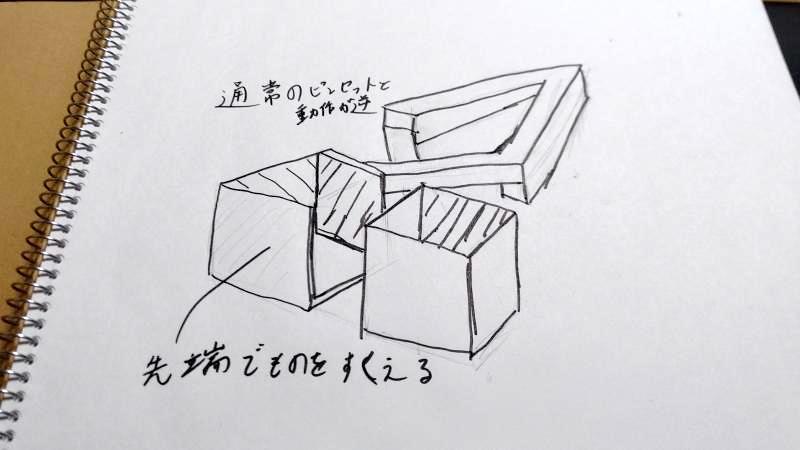 通常のピンセットと
動作が逆
先端でものをすくえる